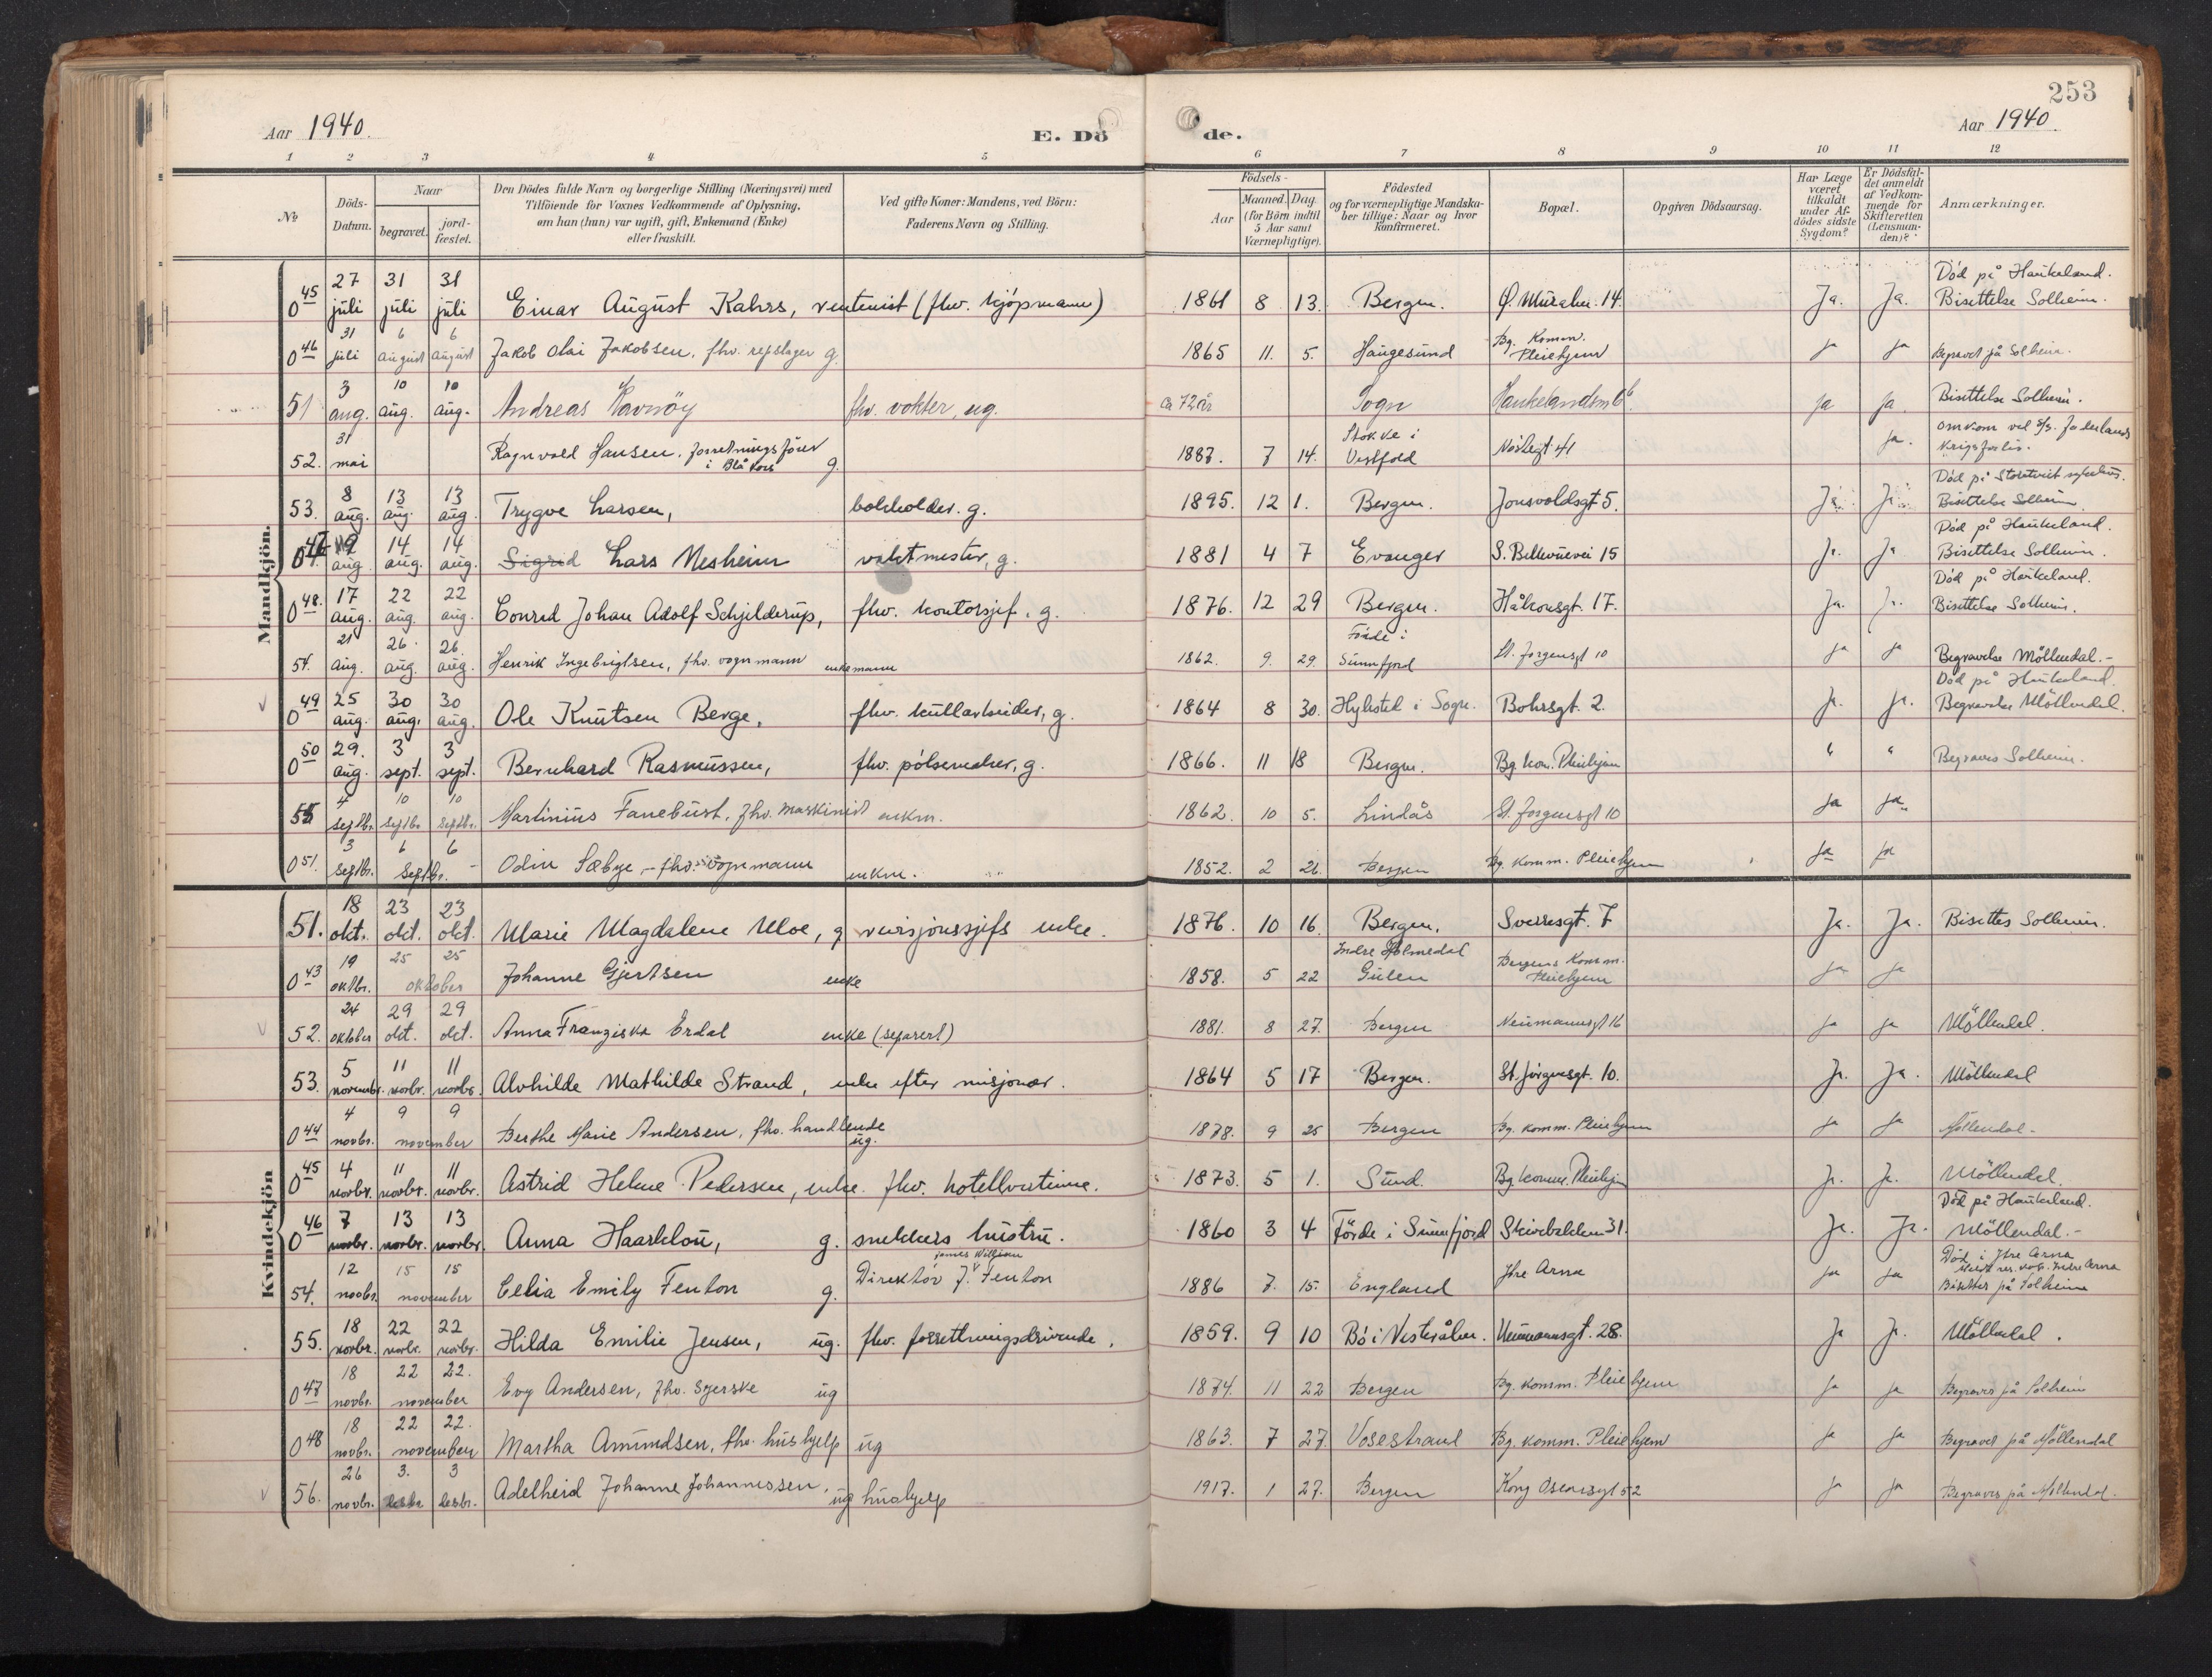 253
Aar 1940. E. Dö de. Aar 1940.
1 2 3 4 5 6 7 8 9 10 11 12
No
Döds-Datum.
Naar
begravet.
jord-fæstet.
Den Dödes fulde Navn og borgerlige Stilling (Næringsvei) med
Tilföiende for Voxnes Vedkommende af Oplysning,
om han (hun) var ugift, gift, Enkemand (Enke)
eller fraskilt.
Ved gifte Koner: Mandens, ved Börn:
Faderens Navn og Stilling.
Födsels-
Aar
Maaned. Dag.
(for Börn indtil
5 Aar samt
Værnepligtige).
Födested
og for værnepligtige Mandska-
ber tillige: Naar og hvor
konfirmeret.
Bopæl.
Opgiven Dödsaarsag.
Har Læge
været
tilkaldt
under Af-
dödes sidste
Sygdom?
Er Dödsfal-
det anmeldt
af Vedkom-
mende for
Skifteretten
(Lensman-
den)?
Anmærkninger.
Mandkjön.
0 45 27 juli 31 juli 31 juli Einar August Kahrs, rentenist (fhv. kjöpmann) 1861 8 13. Bergen. Ø. Muralm. 14. Ja. Ja. Död på Haukeland. Bisettelse Solheim.
0 46 31 juli 6 august 6 august Jakob Olai Jakobsen, fhv. repslager g. 1865 11. 5. Haugesund Bg. Komm. Pleiehjem ja ja Begravet på Solheim.
51 3 aug. 10 aug. 10 aug. Andreas Ravnöy fhv. vokter, ug. ca 72 år Sogn Haukelandsv. ja ja. Bisettelse Solheim.
52. 31 mai Ragnvald Hansen, forretningsförer i Blå Kors g. 1887. 7 14. Stokke i Vestfold Nöstegt 41 ja. Omkom ved Krigsforlis.
53. 8 aug. 13 aug. 13 aug. Trygve Larsen, bokholder. g. 1895. 12 1. Bergen. Jonsvoldsgt 5. Ja. Ja. Död på sykehus. Bisettelse Solheim
0 47. 9 aug. 14 aug. 14 aug. Sigrid Lars Nesheim vaktmester, g. 1881 4 7 Evanger S. Bellevuevei 15 Ja. Ja Död på Haukeland. Bisettelse Solheim.
0 48. 17 aug. 22 aug. 22 aug. Conrad Johan Adolf Schjelderup, fhv. kontorsjef. g. 1876. 12 29 Bergen. Håkonsgt. 17. Ja. Ja. Död på Haukeland. Bisettelse Solheim.
54. 21 aug. 26. aug. 26. aug. Henrik Ingebrigtsen, fhv. vognmann enkemann 1862. 9. 29. Förde i Sunnfjord St. Jörgensgt 10 ja ja Begravelse Möllendal.-
0 49 25 aug. 30 aug. 30 aug. Ole Knutsen Berge, fhv. kullarbeider, g. 1864 8 30. i Sogn. Bohrsgt. 2. Ja. Ja. Död på Haukeland. Begravelse Möllendal.
0 50 29. aug. 3 sept. 3 sept. Bernhard Rasmussen, fhv. pölsemaker, g. 1866. 11 18 Bergen. Bg. kom. Pleiehjem " " Begraves Solheim.
55 4 septbr. 10 septbr. 10 septbr. Martinius Fanebust, fhv. maskinist enkm. 1862. 10 5. Lindås St. Jörgensgt 10 ja ja
0 51. 3 septbr. 6 6 septbr. Odin Sæbye - fhv. vognmann enkm. 1852. 2 26. Bergen Bg. komm. Pleiehjem ja ja
Kvindekjön
51. 18 okt. 23 okt. 23 okt. Marie Magdalene Moe, g revisjonssjefs enke. 1876. 10 16. Bergen. Sverresgt. 7 Ja. Ja. Bisettes Solheim.
0 43 19 oktbr. 25 25 oktober Johanne Gjertsen enke 1858. 5 22 Indre Holmedal Gulen Bergens Komm. Pleiehjem ja ja
52. 24 oktober 29 okt. 29 okt. Anna Franziska Erdal enke (separert) 1881. 8 27. Bergen Neumannsgt 16 ja ja Möllendal.
53. 5 novembr. 11 novbr. 11 novbr. Alvhilde Mathilde Strand, enke efter misjonær. 1864 5 17 Bergen. St. Jörgensgt. 10. Ja. Ja. Möllendal
0 44 4 novbr. 9 9 november Berthe Marie Andersen, fhv. handlende ug. 1878. 9 25 Bergen Bg. komm. Pleiehjem ja ja Möllendal-
0 45 4 novbr. 11 novbr. 11 novbr. Astrid Helene Pedersen, enke. fhv. hotellvertinne. 1873. 5 1. Sund. Bg. komm. Pleiehjem Ja. Ja. Möllendal.
0 46 7 novbr. 13 novbr. 13 novbr. Anna Haarklou, g. snekkers hustru. 1860 3 4 Förde i Sunnfjord Skivebakken 31. Ja. Ja. Död på Haukeland. Möllendal.-
54. 12 novbr. 15 15 november Celia Emily Fenton g. Direktör J. Fenton James William 1886 7. 15. England Ytre Arna ja ja Död i Ytre Arna Indre Arna Bisettes på Solheim
55. 18 novbr. 22 novbr. 22 novbr. Hilda Emilie Jensen, ug. fhv. forretningsdrivende. 1859. 9 10 Bö i Vesterålen. Neumannsgt. 28. Ja Ja. Möllendal.
0 47 18 novbr. 22 22. november Evy Andersen, fhv. syerske ug 1874. 11 22 Bergen Bg. komm. Pleiehjem ja ja Begraves på Solheim
0 48 18 novbr. 22 22. november Martha Amundsen, fhv. hushjelp ug 1863. 7 27. Vossestrand Bg. komm. Pleiehjem ja ja Begravet på Möllendal
56. 26 novbr. 3. desbr. 3 desbr. Adelheid Johanne Johannessen, ug hushjelp 1917. 1 27. Bergen Kong Oscarsgt 52 ja ja Begraves på Möllendal.